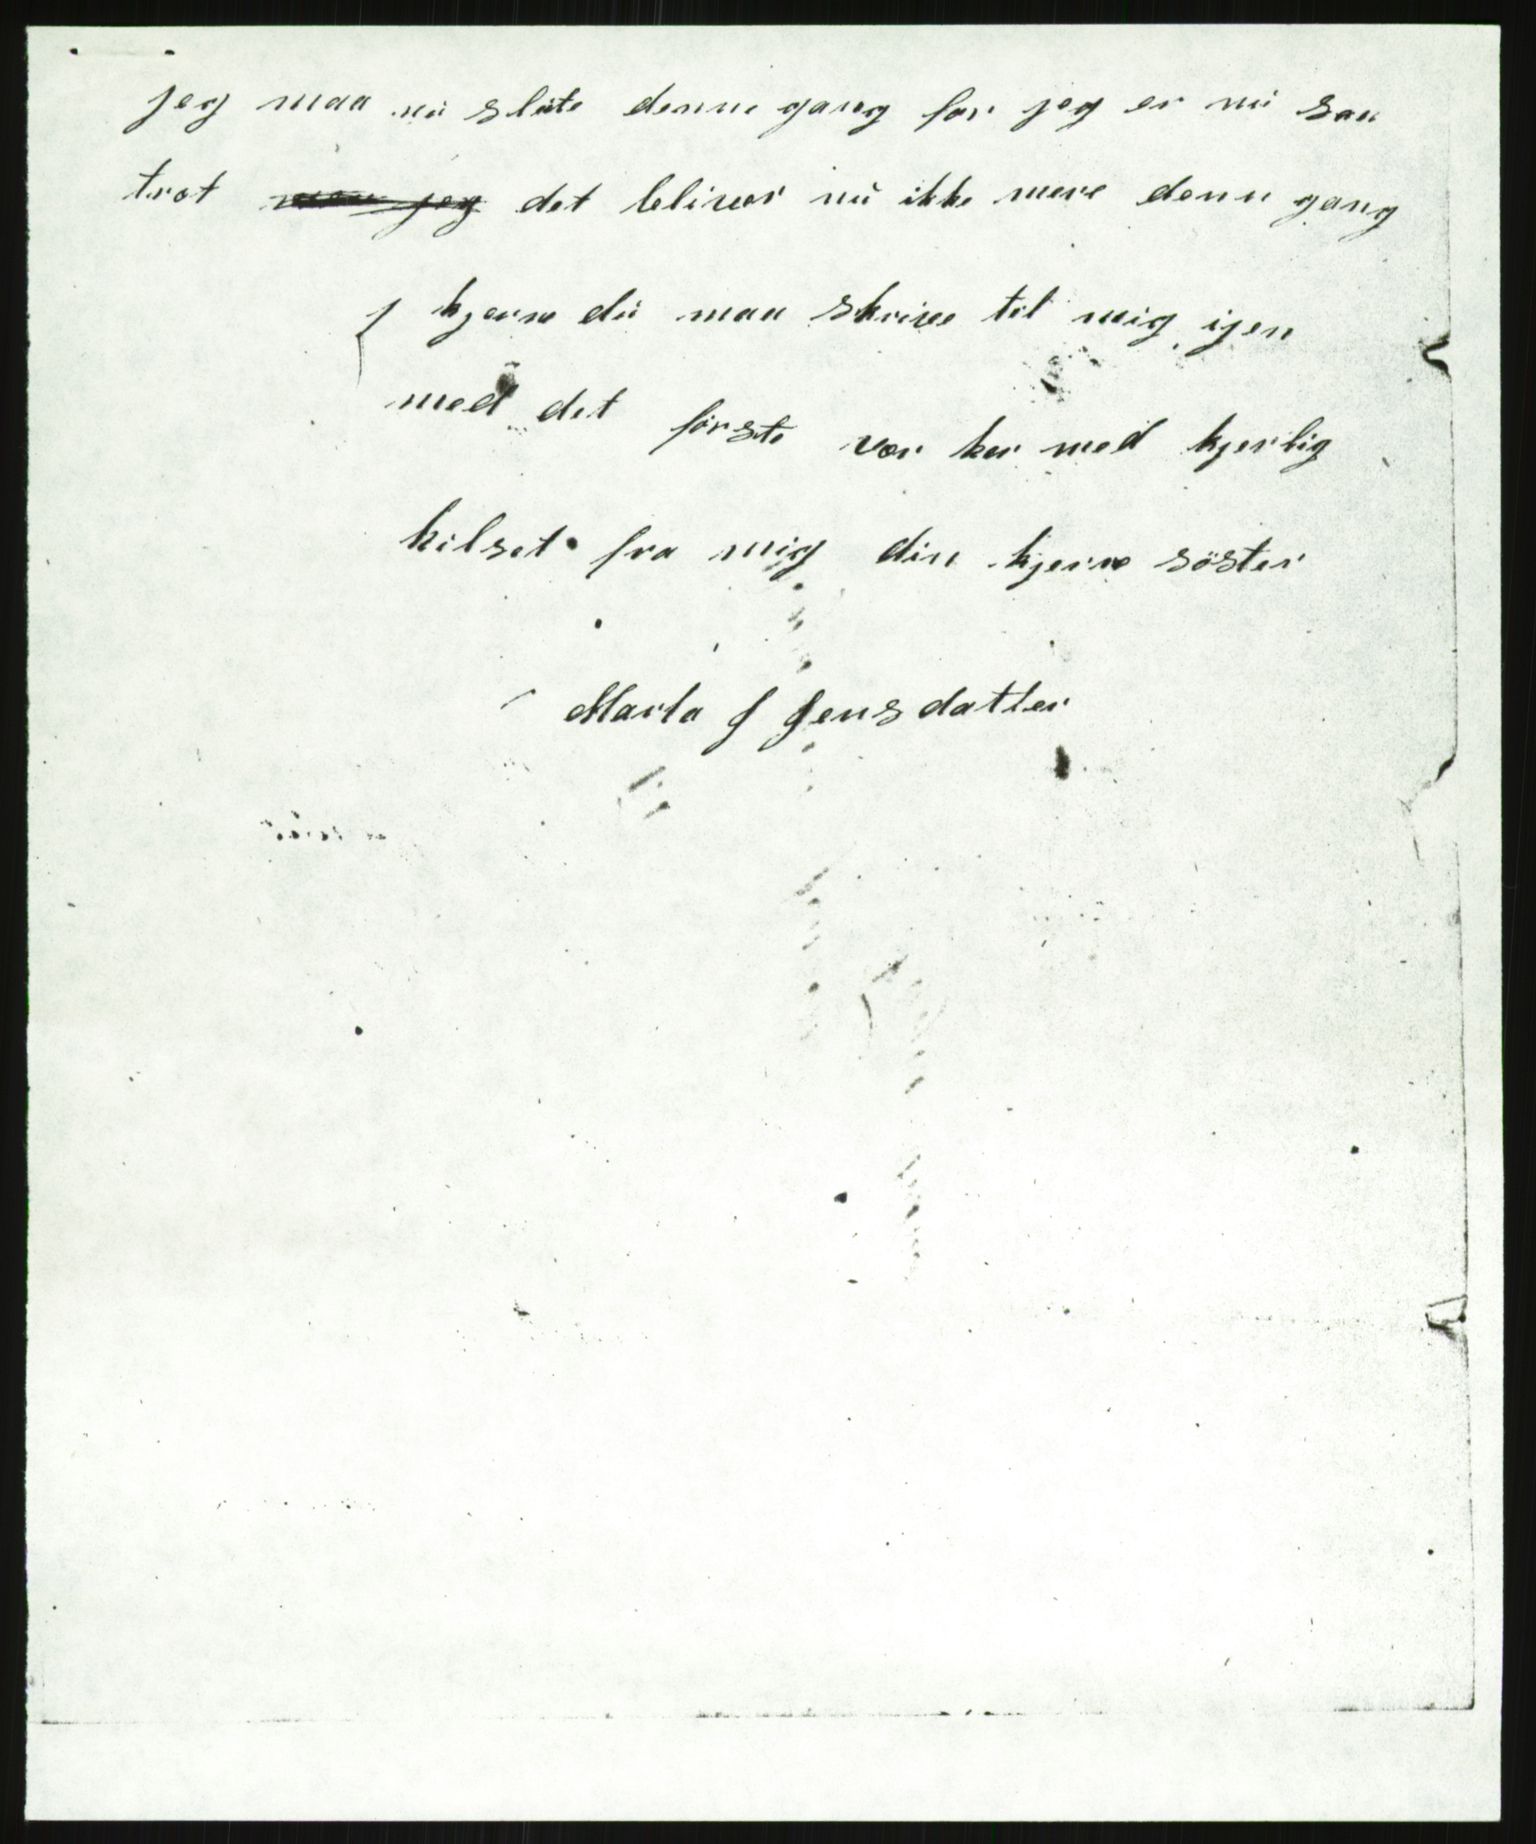 jeg maa nù slùte denne gang for jeg er nù saa
trøt maa jeg det bliwer nù ikke mere denn gang
kjerre dù maa skriwe til mig igen
med det förste vær her med kjerlig
hilset fra mig din kjerre söster
Marta J Jensdatter